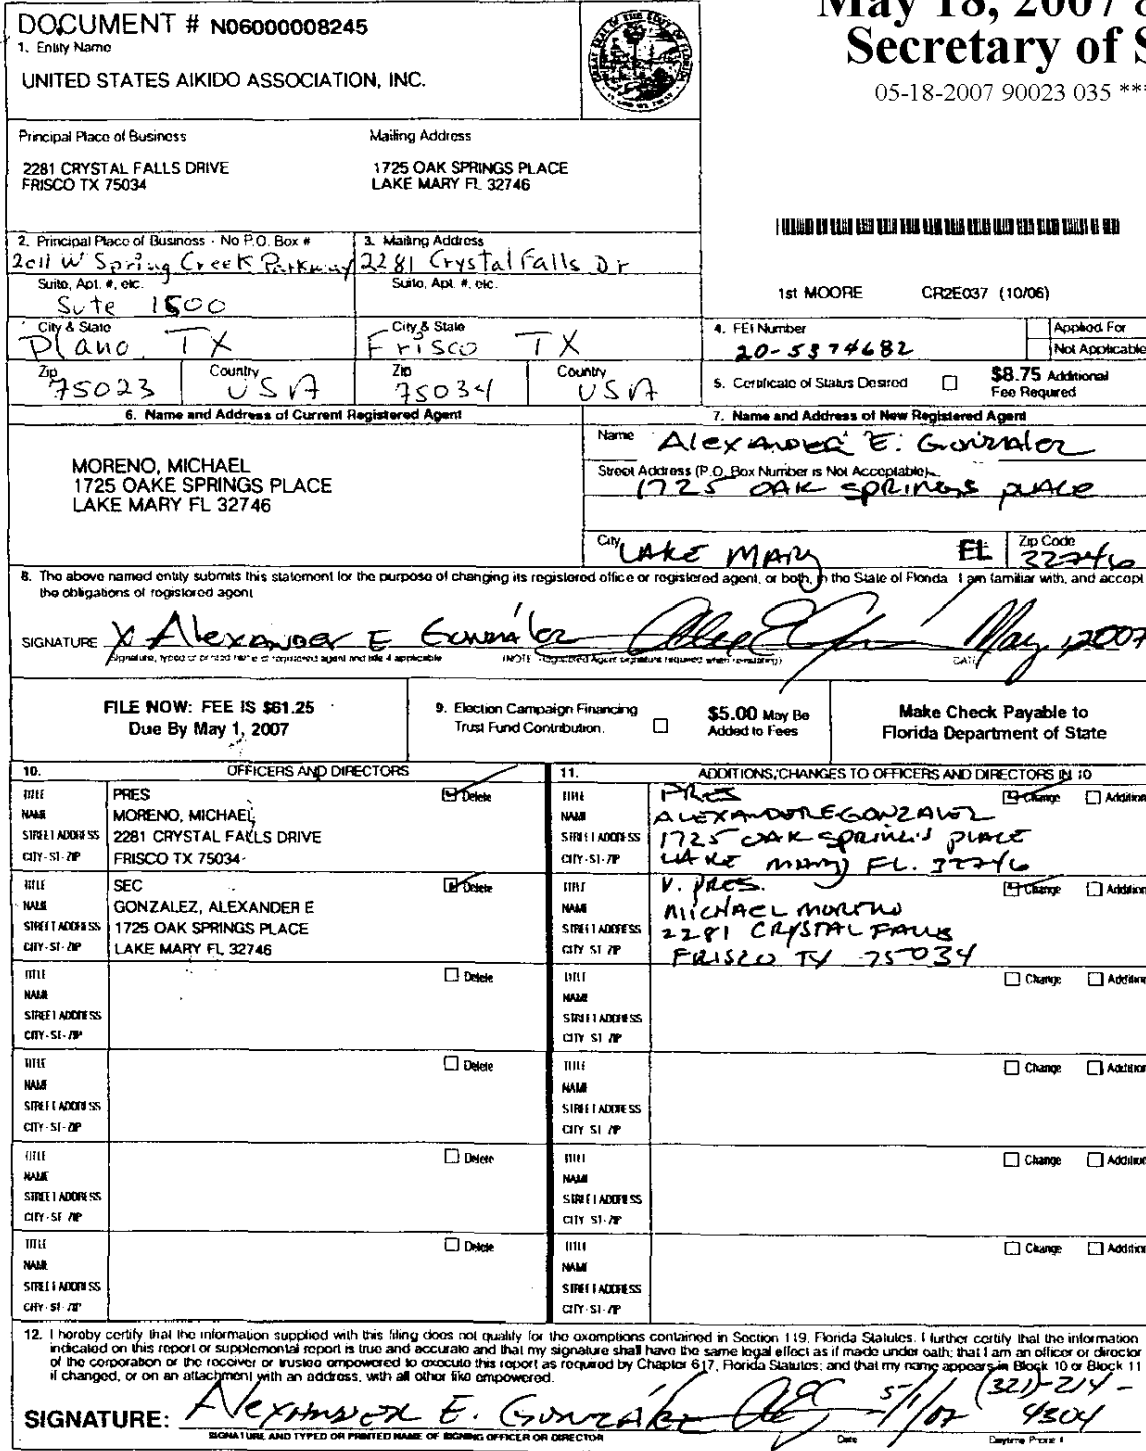 DOCUMENT # N06000008245
1. Entity Name
UNITED STATES AIKIDO ASSOCIATION, INC.
May 18, 2007 8
Secretary of S
05-18-2007 90023 035 ***
Principal Place of Business
2281 CRYSTAL FALLS DRIVE
FRISCO TX 75034
Mailing Address
1725 OAK SPRINGS PLACE
LAKE MARY FL 32746
2. Principal Place of Business - No P.O. Box #
2011 W Spring Creek Parkway
3. Mailing Address
2281 Crystal Falls Dr
Suite, Apt. #, etc.
Sute 1500
Suite, Apt. #, etc.
City & State
Plano, TX
City & State
Frisco TX
Zip
75023
Country
USA
Zip
75034
Country
USA
1st MOORE CR2E037 (10/06)
4. FEI Number
20-5374682
Applied For
Not Applicable
5. Certificate of Status Desired
$8.75 Additional
Fee Required
6. Name and Address of Current Registered Agent
MORENO, MICHAEL
1725 OAKE SPRINGS PLACE
LAKE MARY FL 32746
7. Name and Address of New Registered Agent
Name
Alexander E. Gonzalez
Street Address (P.O. Box Number is Not Acceptable)
1725 OAK SPRINGS PLACE
City
LAKE MARY
FL
Zip Code
32746
8. The above named entity submits this statement for the purpose of changing its registered office or registered agent, or both, in the State of Florida. I am familiar with, and accept
the obligations of registered agent
SIGNATURE X Alexander E González
May 1, 2007
Signature, typed or printed name of registered agent and title if applicable
(NOTE: Registered Agent signature required when reinstating)
DATE
FILE NOW: FEE IS $61.25
Due By May 1, 2007
9. Election Campaign Financing
Trust Fund Contribution.
$5.00 May Be
Added to Fees
Make Check Payable to
Florida Department of State
10. OFFICERS AND DIRECTORS
TITLE PRES
Delete
NAME MORENO, MICHAEL
STREET ADDRESS 2281 CRYSTAL FALLS DRIVE
CITY-ST-ZIP FRISCO TX 75034
TITLE SEC
Delete
NAME GONZALEZ, ALEXANDER E
STREET ADDRESS 1725 OAK SPRINGS PLACE
CITY-ST-ZIP LAKE MARY FL 32746
TITLE
Delete
NAME
STREET ADDRESS
CITY-ST-ZIP
TITLE
Delete
NAME
STREET ADDRESS
CITY-ST-ZIP
TITLE
Delete
NAME
STREET ADDRESS
CITY-ST-ZIP
TITLE
Delete
NAME
STREET ADDRESS
CITY-ST-ZIP
11. ADDITIONS/CHANGES TO OFFICERS AND DIRECTORS IN 10
TITLE PRES
Change Addition
NAME ALEXANDER E GONZALEZ
STREET ADDRESS 1725 OAK SPRINGS PLACE
CITY-ST-ZIP LAKE MARY FL. 32746
TITLE V. PRES.
Change Addition
NAME MICHAEL MORENO
STREET ADDRESS 2281 CRYSTAL FALLS
CITY-ST-ZIP FRISCO TX 75034
TITLE
Change Addition
NAME
STREET ADDRESS
CITY-ST-ZIP
TITLE
Change Addition
NAME
STREET ADDRESS
CITY-ST-ZIP
TITLE
Change Addition
NAME
STREET ADDRESS
CITY-ST-ZIP
TITLE
Change Addition
NAME
STREET ADDRESS
CITY-ST-ZIP
12. I hereby certify that the information supplied with this filing does not qualify for the exemptions contained in Section 119, Florida Statutes. I further certify that the information
indicated on this report or supplemental report is true and accurate and that my signature shall have the same legal effect as if made under oath; that I am an officer or director
of the corporation or the receiver or trustee empowered to execute this report as required by Chapter 617, Florida Statutes; and that my name appears in Block 10 or Block 11
if changed, or on an attachment with an address, with all other like empowered.
SIGNATURE: Alexander E. González 5/1/07 (321)-214-
4304
SIGNATURE AND TYPED OR PRINTED NAME OF SIGNING OFFICER OR DIRECTOR
Date
Daytime Phone #